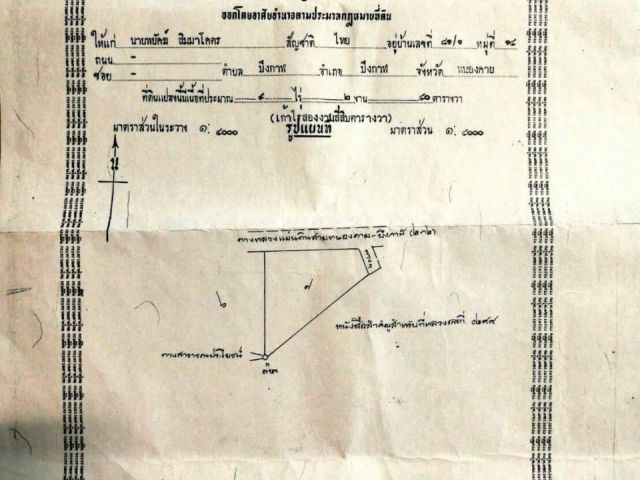 ออกโดยอาศัยอำนาจตามประมวลกฎหมายที่ดิน
ให้แก่ นายหยัคฆ์ สิมมาโคตร สัญชาติ ไทย อยู่บ้านเลขที่ ๘๑/๑ หมู่ที่ ๑๔
ถนน -
ซอย - ตำบล บึงกาฬ อำเภอ บึงกาฬ จังหวัด หนองคาย
ที่ดินแปลงนี้มีเนื้อที่ประมาณ ๙ ไร่ ๒ งาน ๔๐ ตารางวา
(เก้าไร่สองงานสี่สิบตารางวา)
มาตราส่วนในระวาง ๑: ๔๐๐๐ รูปแผนที่ มาตราส่วน ๑: ๔๐๐๐
น
ทางหลวงแผ่นดินสายหนองคาย-บึงกาฬ (๒๑๒)
๖ ๗
หนังสือสำคัญสำหรับที่หลวงเลขที่
ทางสาธารณประโยชน์